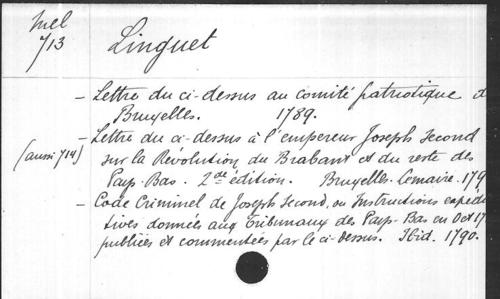 Mel
713
Linguet
- Lettre du ci-dessus au comité patriotique d
Bruxelles. 1789.
- Lettre du ci-dessus à l'empereur Joseph Second
(aussi 714)
sur la Revolution du Brabant et du reste des
Pays-Bas. 2de édition. Bruxelles. Lemaire. 179
- Code Criminel de Joseph Second, ou Instructions expedi
tives données aux Tribunaux des Pays-Bas en Oct 17
publiées et commentées par le ci-dessus. Ibid. 1790.